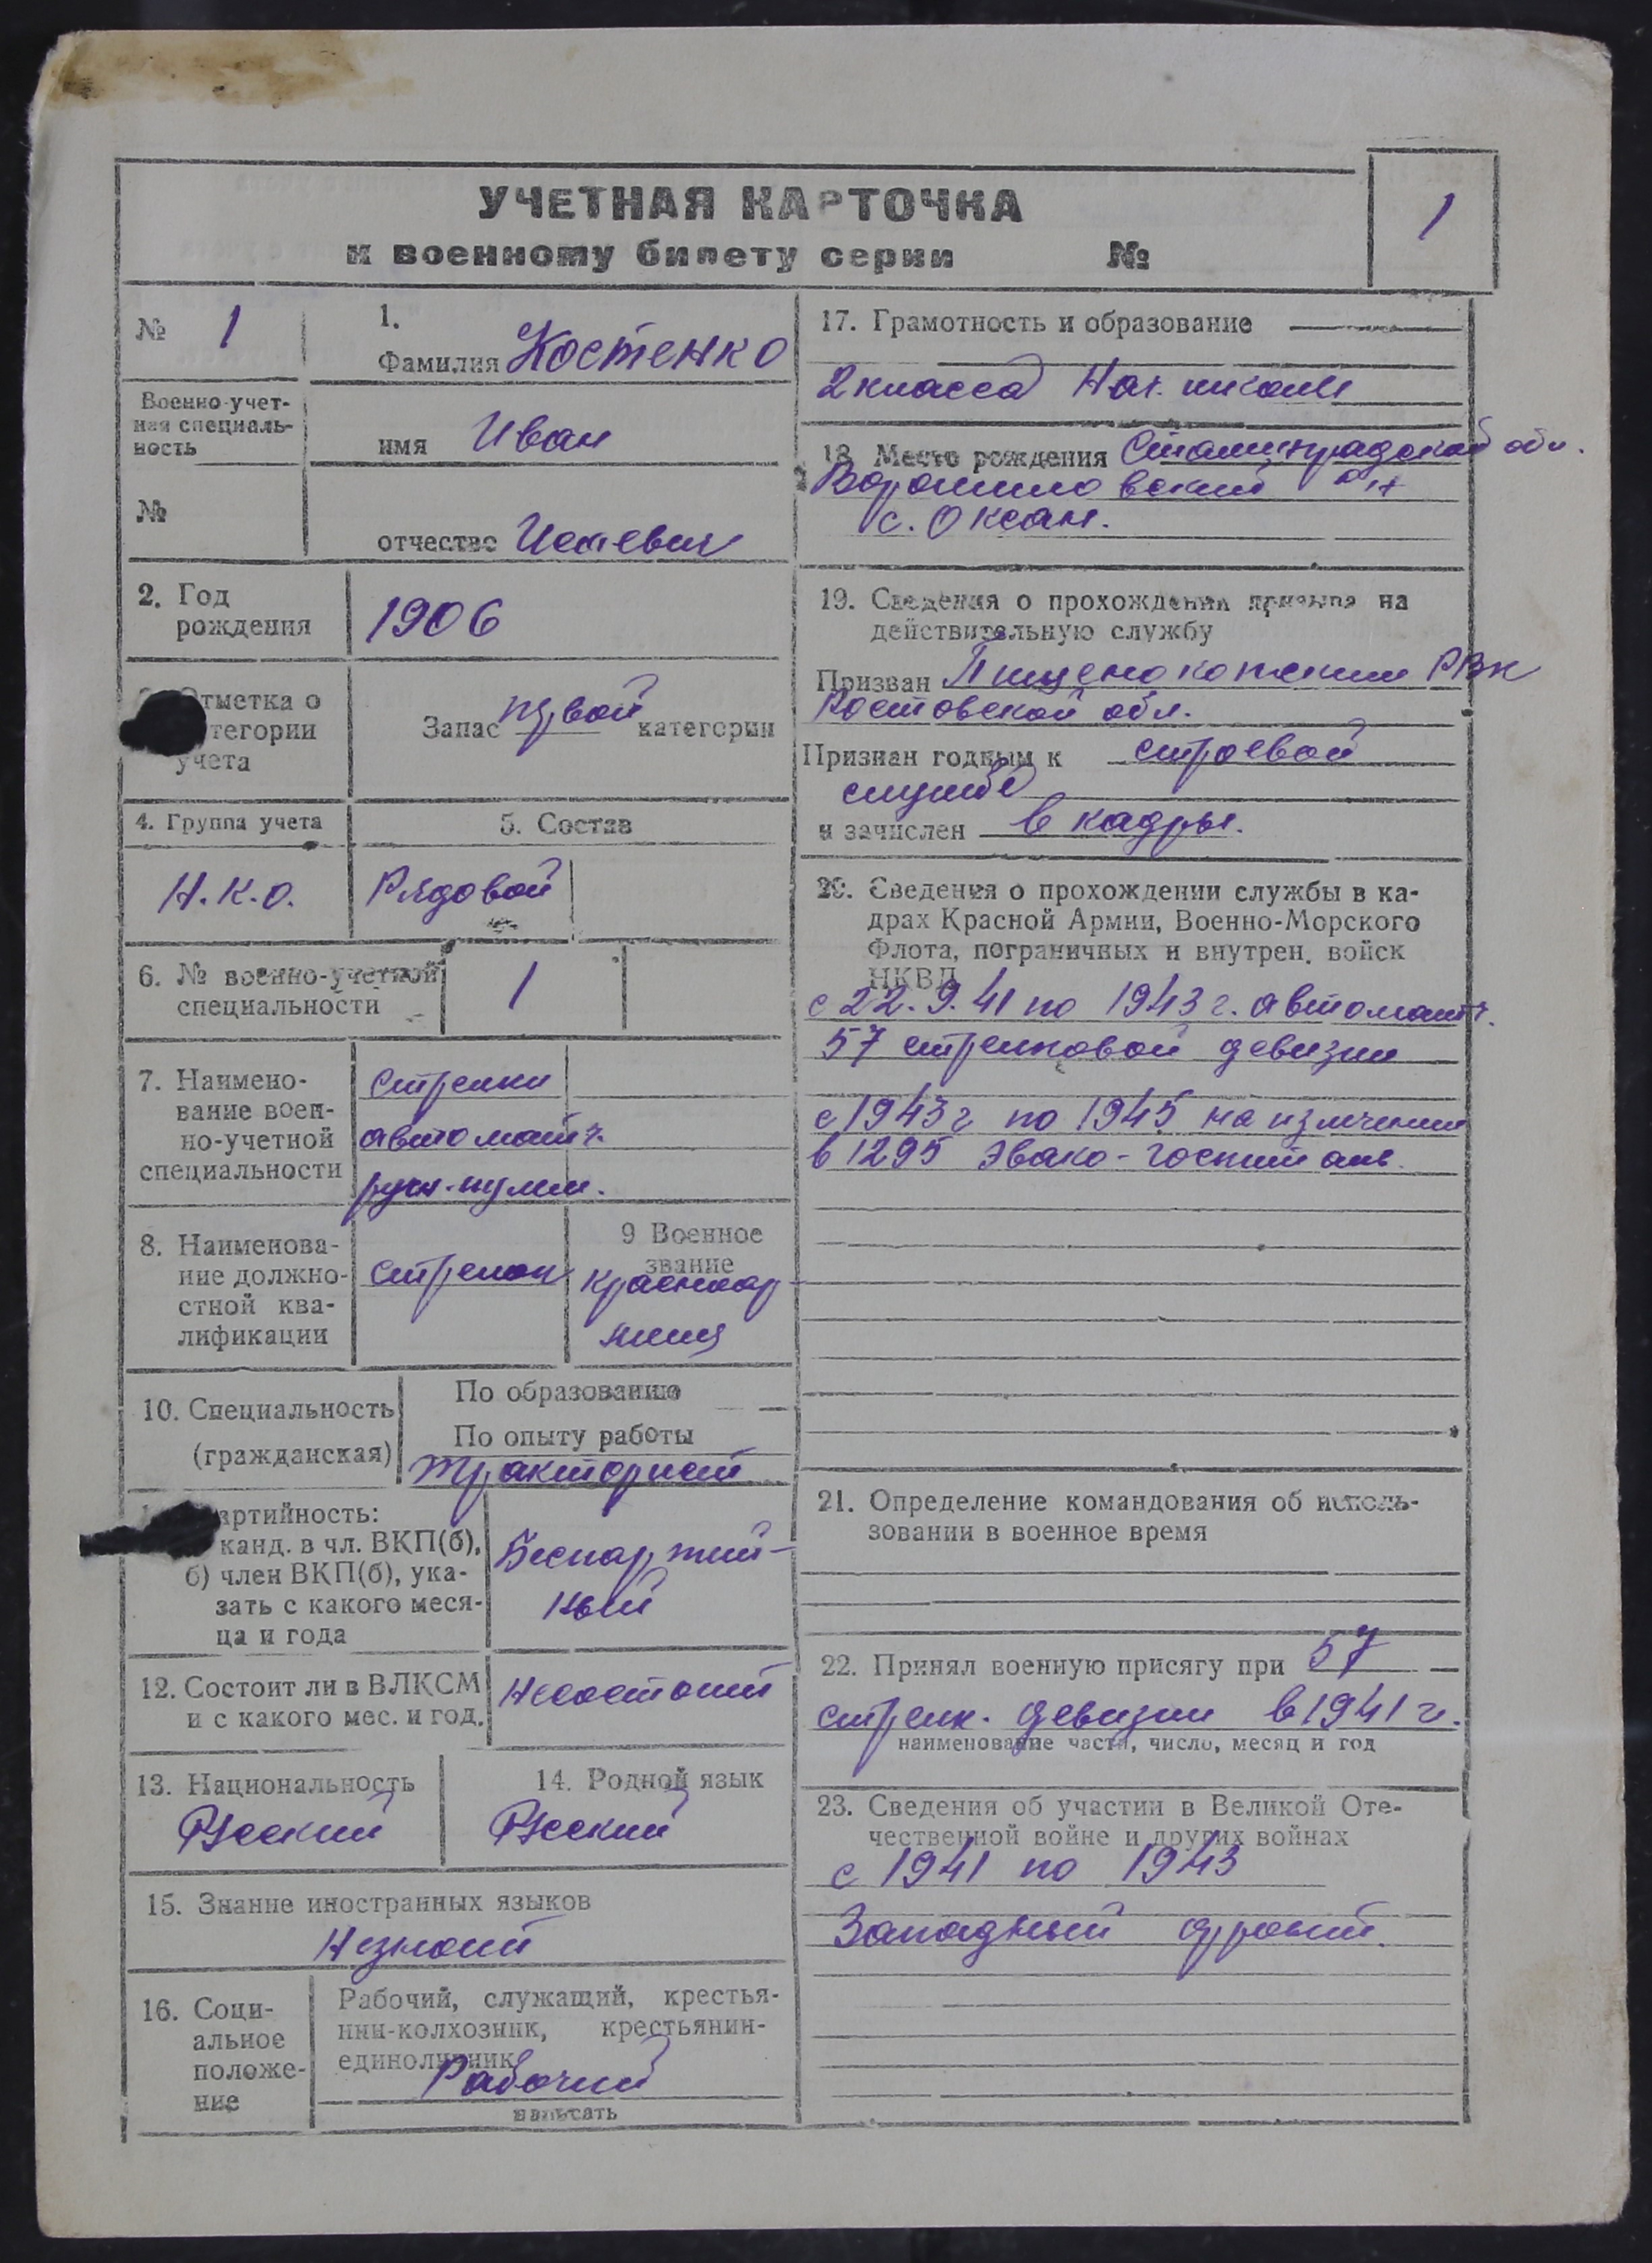 УЧЕТНАЯ КАРТОЧКА
к военному билету серии №
1
№ 1
Военно-учет-
ная специаль-
ность
№
1.
Фамилия Костенко
имя Иван
отчество
2. Год
рождения
1906
Отметка о
тегории
учета
Запас првой категории
4. Группа учета
Н.К.О.
5. Состав
Рядовой
6. № военно-учетной
специальности
1
7. Наимено-
вание воен-
но-учетной
специальности
стрелки
автоматч.
руч-пулем.
8. Наименова-
ние должно-
стной ква-
лификации
стрелок
9 Военное
звание
красноар
меец
10. Специальность
(гражданская)
По образованию —
По опыту работы
тракторист
артийность:
канд. в чл. ВКП(б),
б) член ВКП(б), ука-
зать с какого меся-
ца и года
Беспартий-
ный
12. Состоит ли в ВЛКСМ
и с какого мес. и год.
Несостоит
13. Национальность
Русский
14. Родной язык
Русский
15. Знание иностранных языков
Незнает
16. Соци-
альное
положе-
ние
Рабочий, служащий, крестья-
нин-колхозник, крестьянин-
единоличник
Рабочий
написать
17. Грамотность и образование
2 класса Нач. школы
18. Место рождения Сталинградской обл.
Ворошиловский р-н
с. Оксан.
19. Сведения о прохождении призыва на
действительную службу
Призван РВК
Ростовской обл.
Признан годным к строевой
службе
и зачислен в кадры.
20. Сведения о прохождении службы в ка-
драх Красной Армии, Военно-Морского
Флота, пограничных и внутрен. войск
НКВД
с 22.9.41 по 1943 г. автоматч.
57 стрелковой девизии
с 1943 г по 1945 на излечении
в 1295 эвако-госпитале
21. Определение командования об исполь-
зовании в военное время
22. Принял военную присягу при 57
стрелк. девизии в 1941 г.
наименование части, число, месяц и год
23. Сведения об участии в Великой Оте-
чественной войне и других войнах
с 1941 по 1943
Западный фронт.